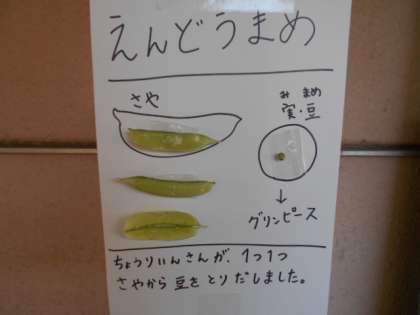 えんどうまめ
さや
み まめ
実・豆
グリンピース
ちょうりいんさんが、1つ1つ
さやから豆をとりだしました。